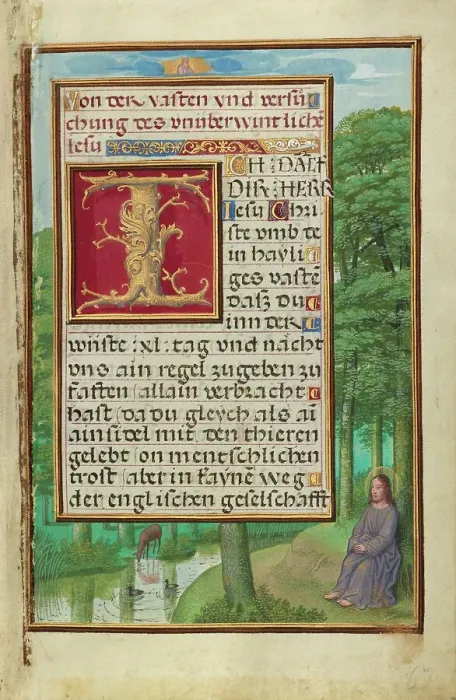 Von der vasten vnd versu
chung des vnüberwintliche
Iesu
ICH : DAÑCK
DIR : HERR
Iesu Chri
ste vmb de
in hayli
ges vastē
daß du
inn der
wüste :xl: tag vnd nacht
vns ain regel zugeben zu
fasten / allain verbracht
hast / da du gleych als ai
ainsidel mit den thieren
gelebt / on mentschlichen
trost / aber in kaynē weg
der englischen geselschafft